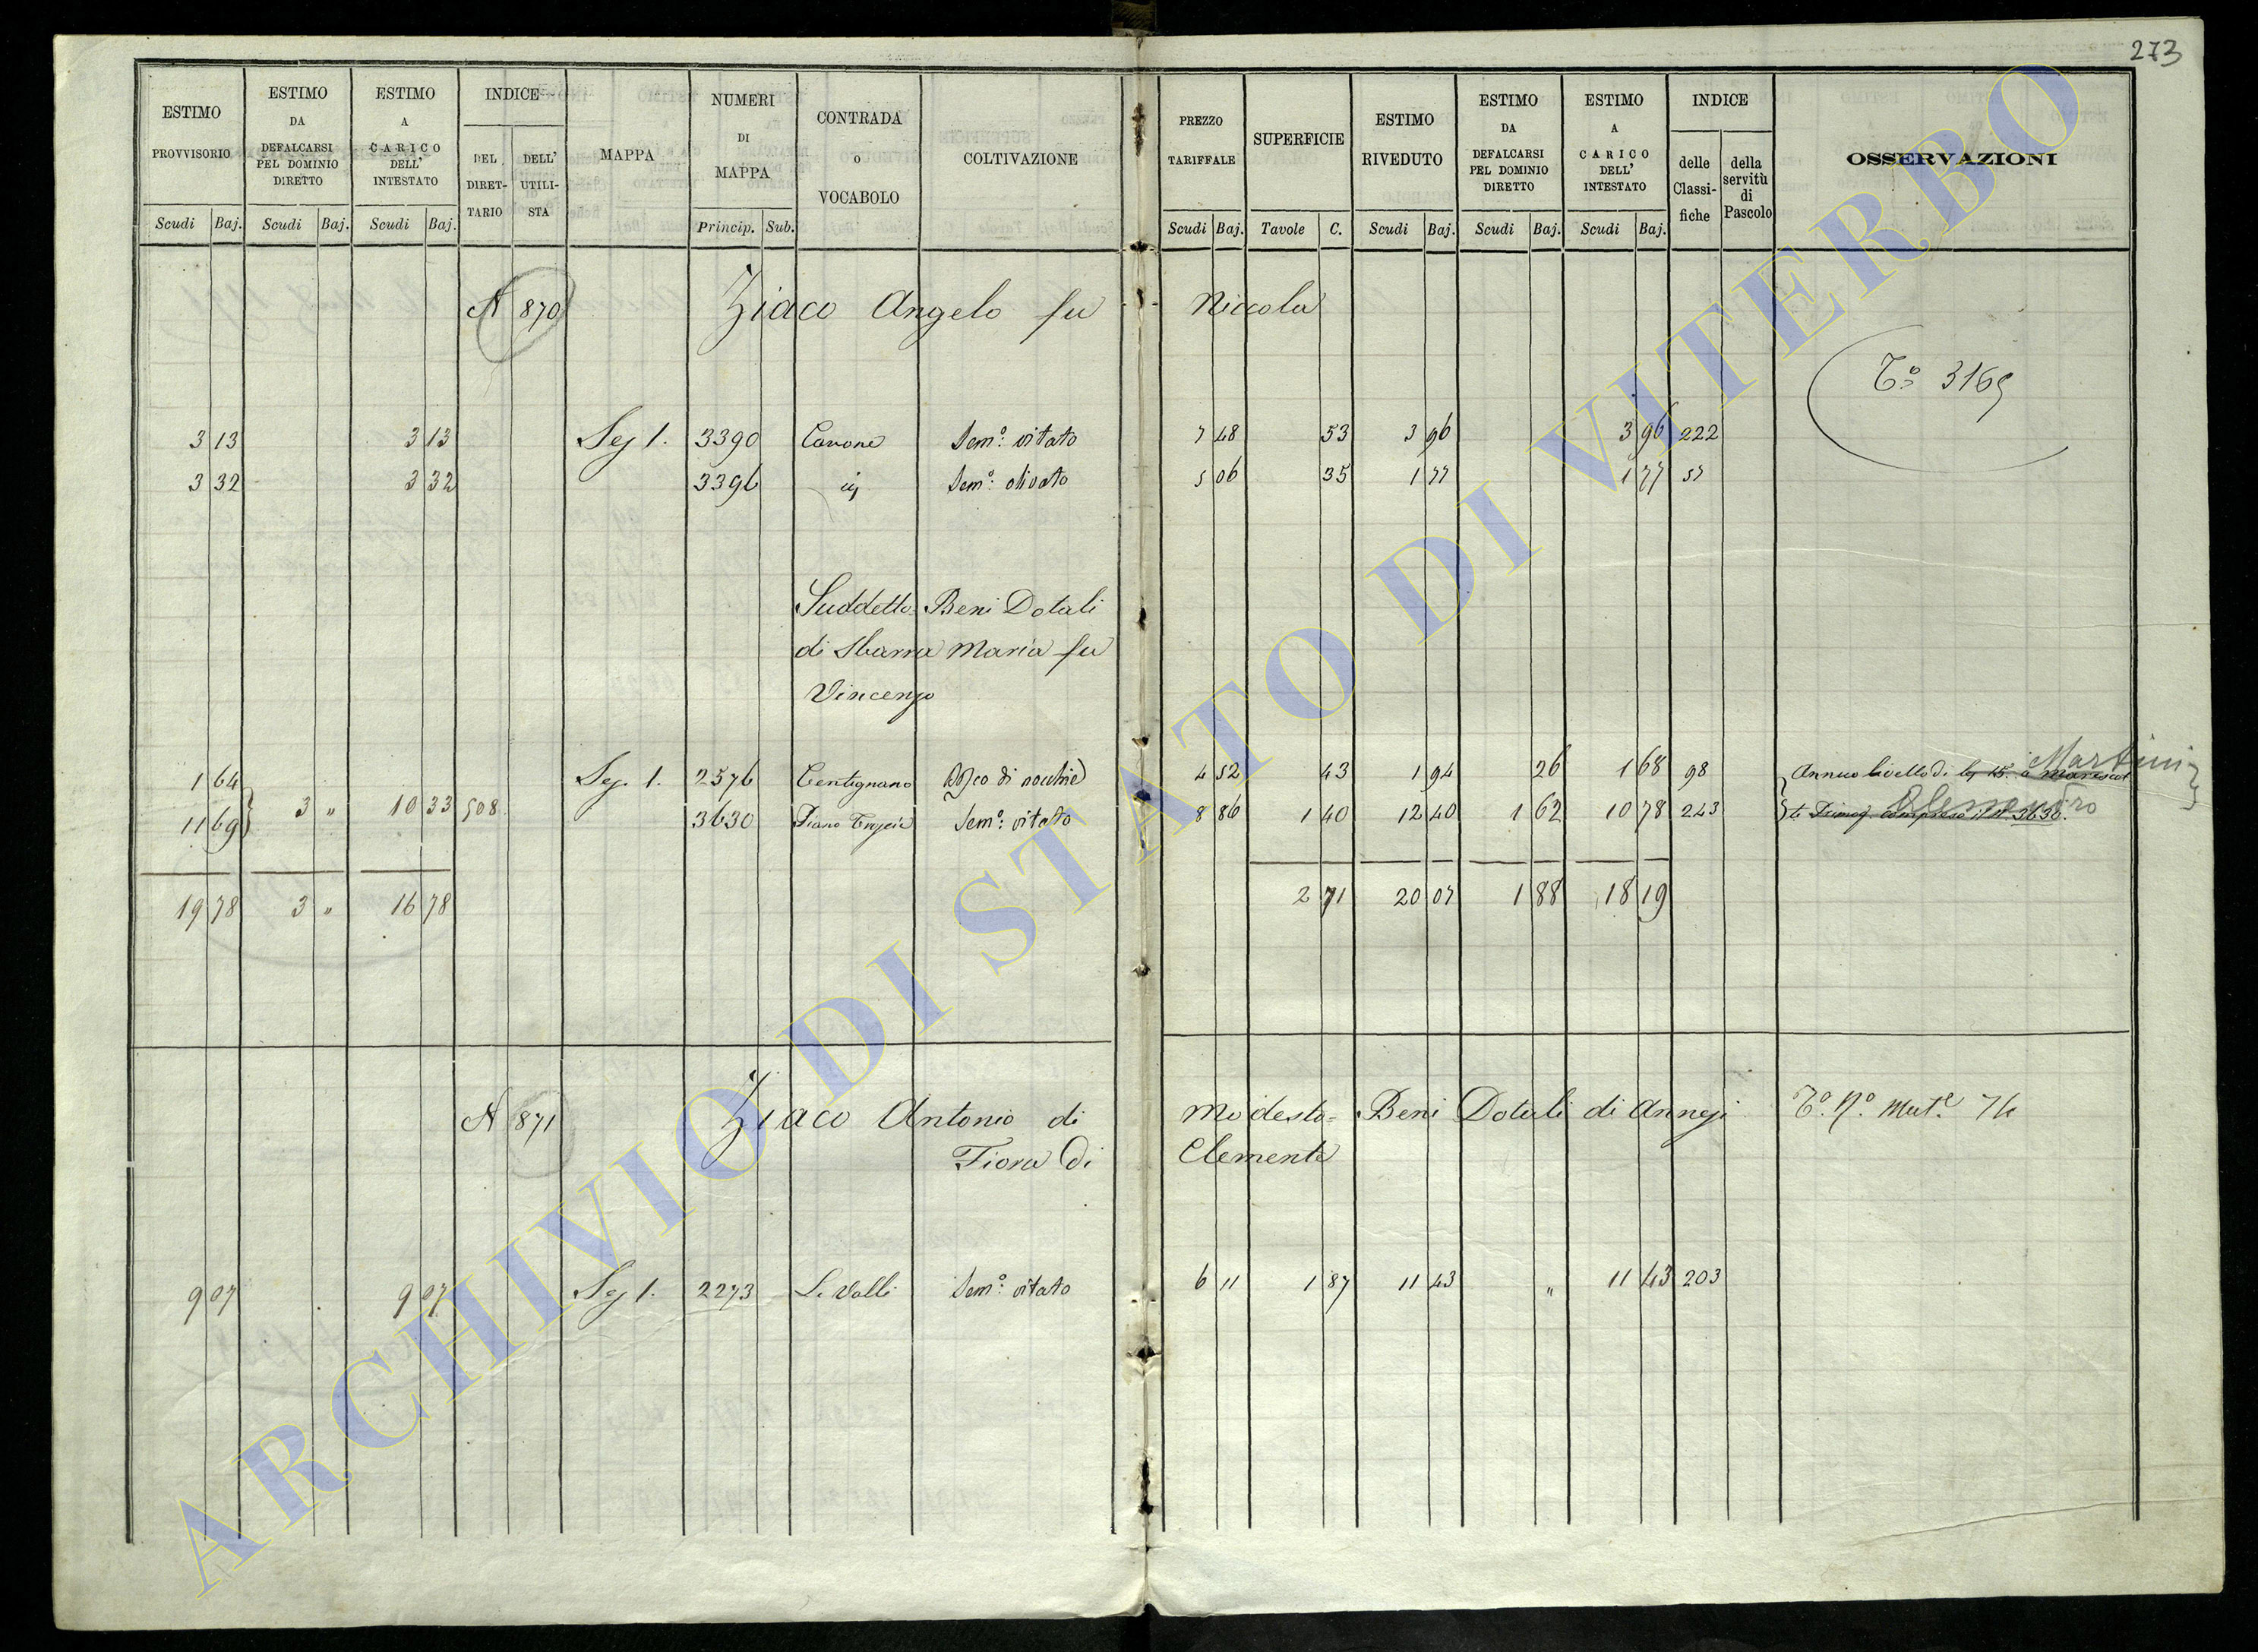 273
ESTIMO PROVVISORIO Scudi Baj.
ESTIMO DA DEFALCARSI PEL DOMINIO DIRETTO Scudi Baj.
ESTIMO A CARICO DELL' INTESTATO Scudi Baj.
INDICE DEL DIRETTARIO DELL' UTILISTA
MAPPA
NUMERI DI MAPPA Princip. Sub.
CONTRADA o VOCABOLO
COLTIVAZIONE
PREZZO TARIFFALE Scudi Baj.
SUPERFICIE Tavole C.
ESTIMO RIVEDUTO Scudi Baj.
ESTIMO DA DEFALCARSI PEL DOMINIO DIRETTO Scudi Baj.
ESTIMO A CARICO DELL' INTESTATO Scudi Baj.
INDICE delle Classifiche della servitù di Pascolo
OSSERVAZIONI
N 870 Ziaco Angelo fu Niccola
To: 3169
3 13 3 13 Sez 1. 3390 Cavone Semo: vitato 7 48 53 3 96 3 96 222
3 32 3 32 3396 Semo: olivato 5 06 35 1 77 1 77 57
Suddetto= Beni Dotali
di Sbarra Maria fu
Vincenzo
Martini
1 64 Sez. 1. 2576 Centignano Bosco di nocchie 4 52 43 1 94 26 1 68 98 Annuo livello di 15. a Marescot
Alessandro
11 69 3 " 10 33 508 3630 Piano Semo: vitato 8 86 1 40 12 40 1 62 10 78 243 compreso il N. 3630.
19 78 3 " 16 78 2 71 20 07 1 88 18 19
N 871 Ziaco Antonio di Modesto= Beni Dotali di Annesi To. No. Mute. 74
Fiora di Clemente
9 07 9 07 Sez 1. 2273 Le Valli Semo: vitato 6 11 1 87 11 43 " 11 43 203
ARCHIVIO DI STATO DI VITERBO